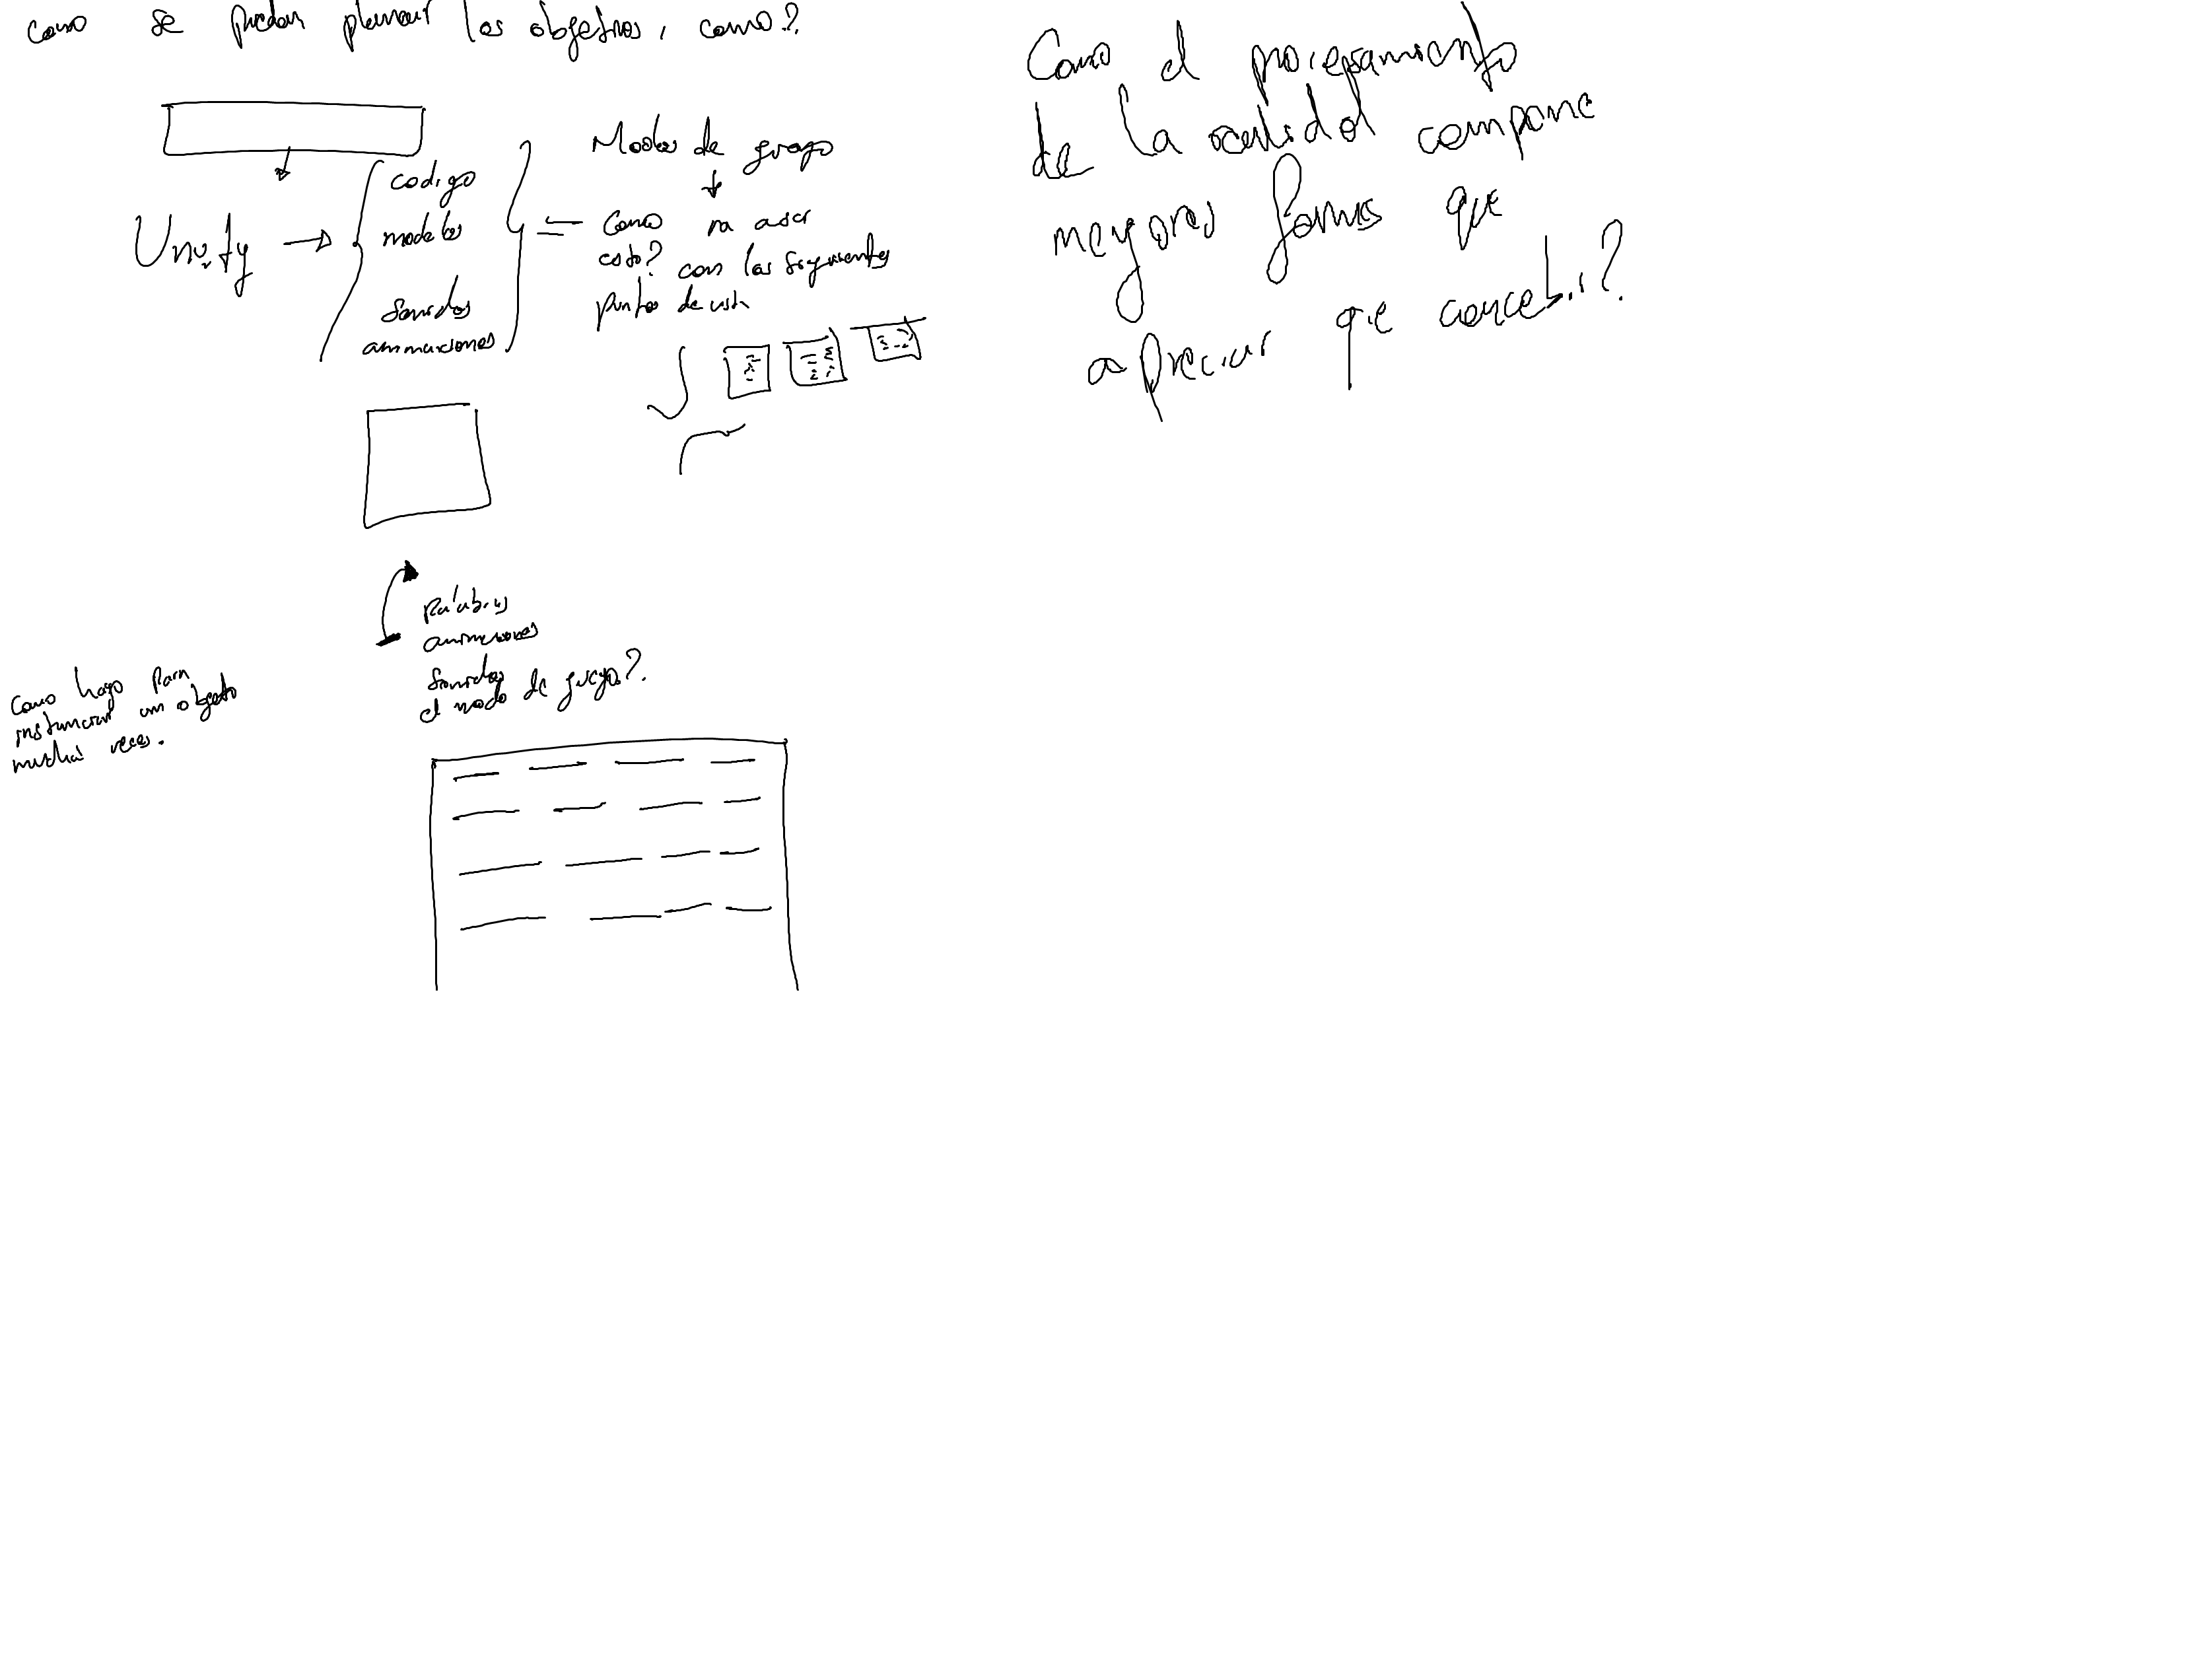 como se puedan planear los objetivos, como?
codigo
modelos
sonidos
animaciones
Unity
Modos de juego
Como va a ser
esto? con los siguientes
puntos de vista
palabras
animaciones
sonidos
el modo de juego?
Como hago para
instanciar un objeto
mucha veces.
Como el procesamiento
de la realidad compone
mejores formas que
apreciar que concebir?